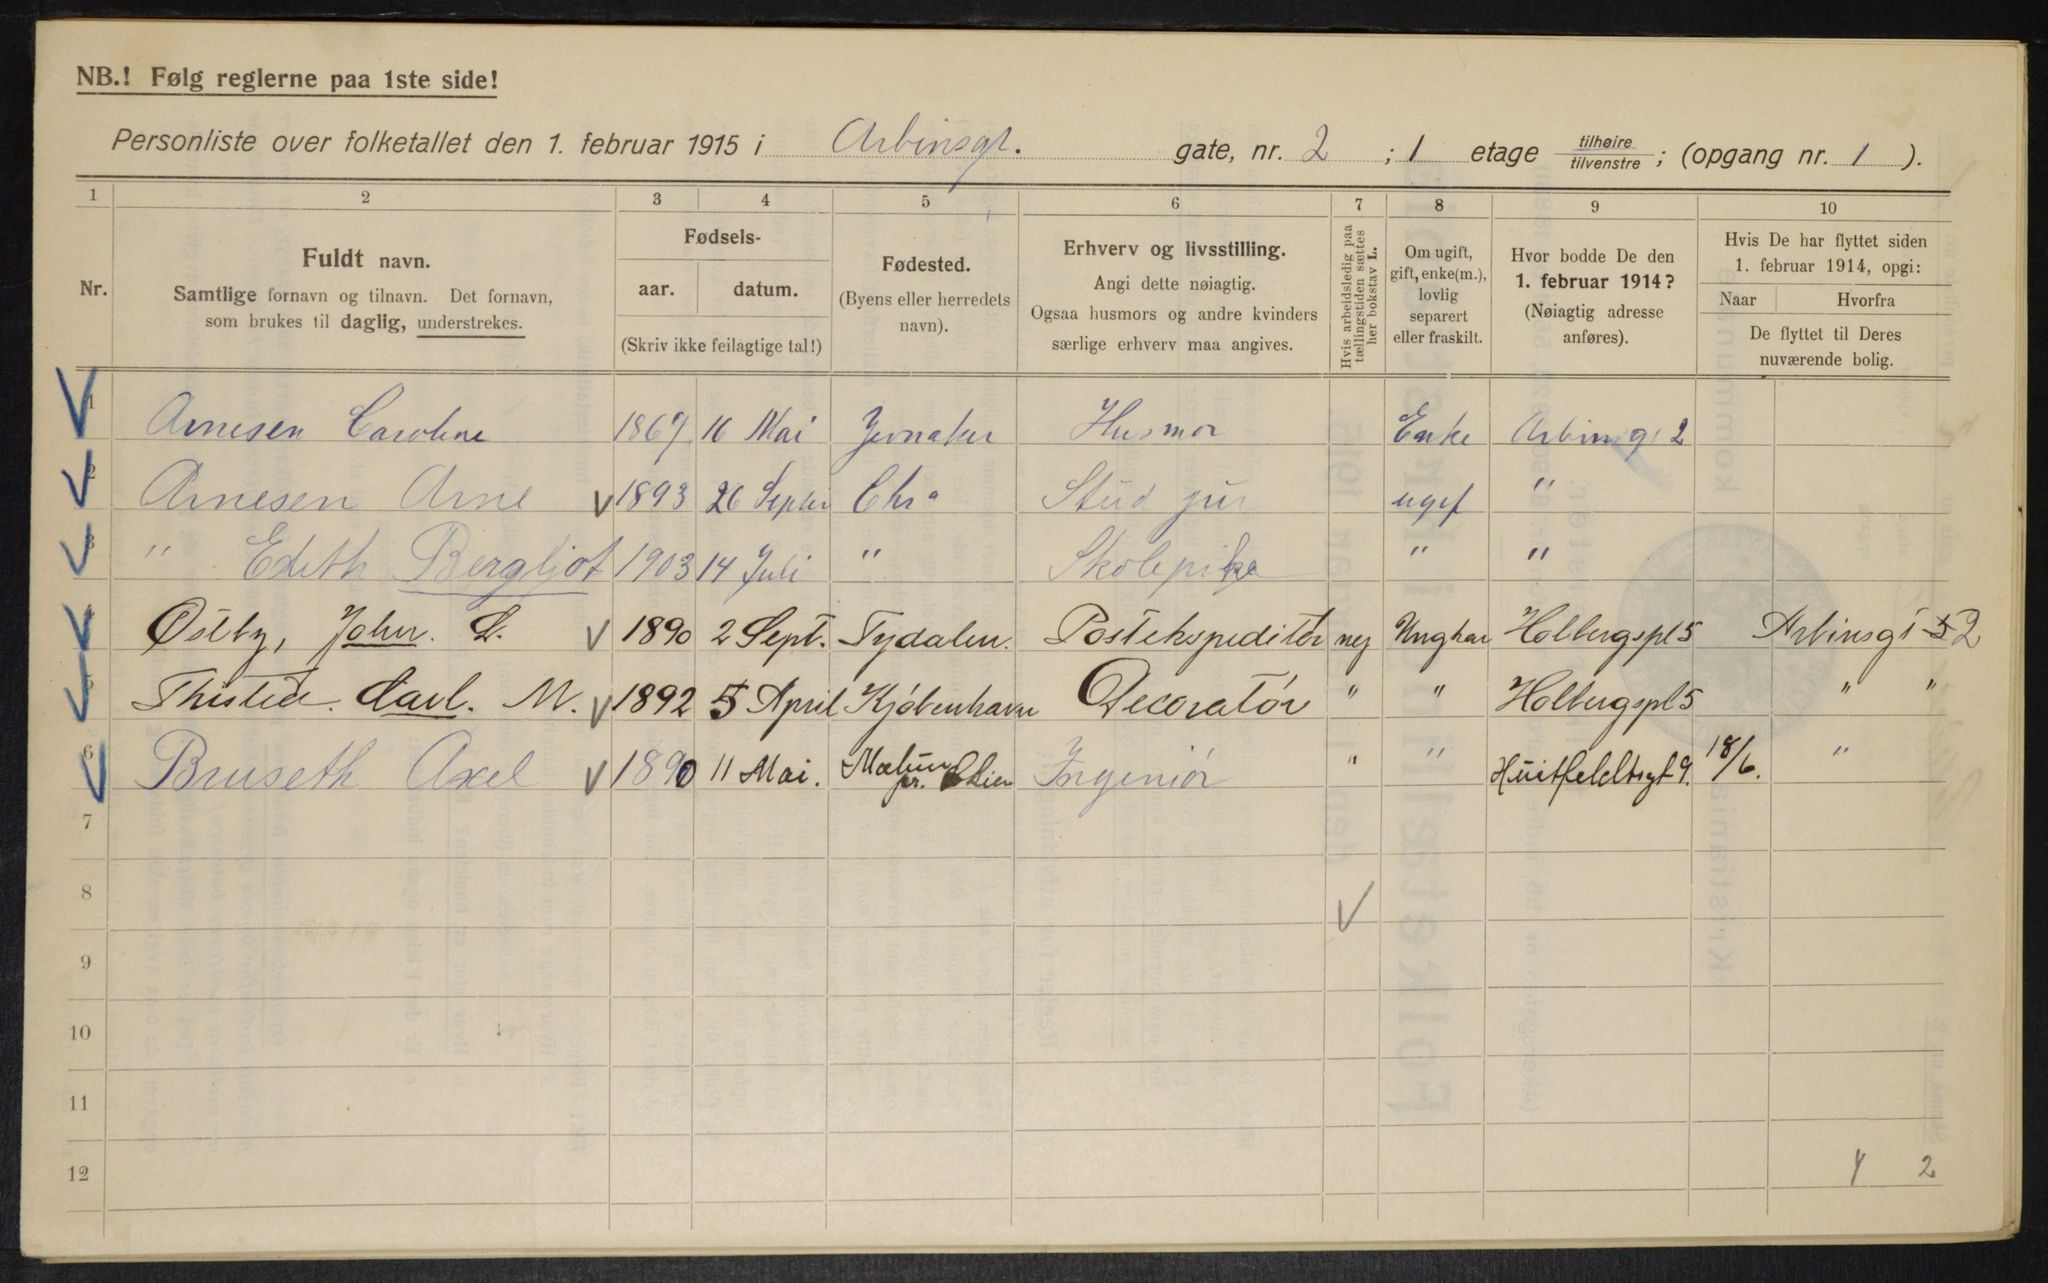 NB.! Følg reglerne paa 1ste side!
Personliste over folketallet den 1. februar 1915 i Arbinsgt. gate, nr. 2 ; 1 etage tilhøire / tilvenstre ; (opgang nr. 1 ).
1 2 3 4 5 6 7 8 9 10
Nr.
Fuldt navn.
Samtlige fornavn og tilnavn. Det fornavn,
som brukes til daglig, understrekes.
Fødsels-
aar. datum.
(Skriv ikke feilagtige tal!)
Fødested.
(Byens eller herredets
navn).
Erhverv og livsstilling.
Angi dette nøiagtig.
Ogsaa husmors og andre kvinders
særlige erhverv maa angives.
Hvis arbeidsledig paa
tællingstiden sættes
her bokstav L.
Om ugift,
gift, enke(m.),
lovlig
separert
eller fraskilt.
Hvor bodde De den
1. februar 1914?
(Nøiagtig adresse
anføres).
Hvis De har flyttet siden
1. februar 1914, opgi:
Naar Hvorfra
De flyttet til Deres
nuværende bolig.
1 Arnesen Caroline 1867 16 Mai Jevnaker Husmor Enke Arbinsg 2
2 Arnesen Arne 1893 26 Septbr Chra Stud jur ugif "
3 " Edith Bergljot 1903 14 Juli " Skolepike " "
4 Østby, John. L. 1890 2 Sept. Tydalen. Postekspeditør nej Ungkar Holbergspl 5 Arbinsgt 5 2
5 Thisted. Carl. M. 1892 5 April Kjöbenhavn Decoratør " " Holbergspl 5 " "
6 Bruseth Axel 1890 11 Mai. pr. Lier Ingeniør " " Huitfeldtsgt 9. 18/6. "
7
8
9
10
11
12 2